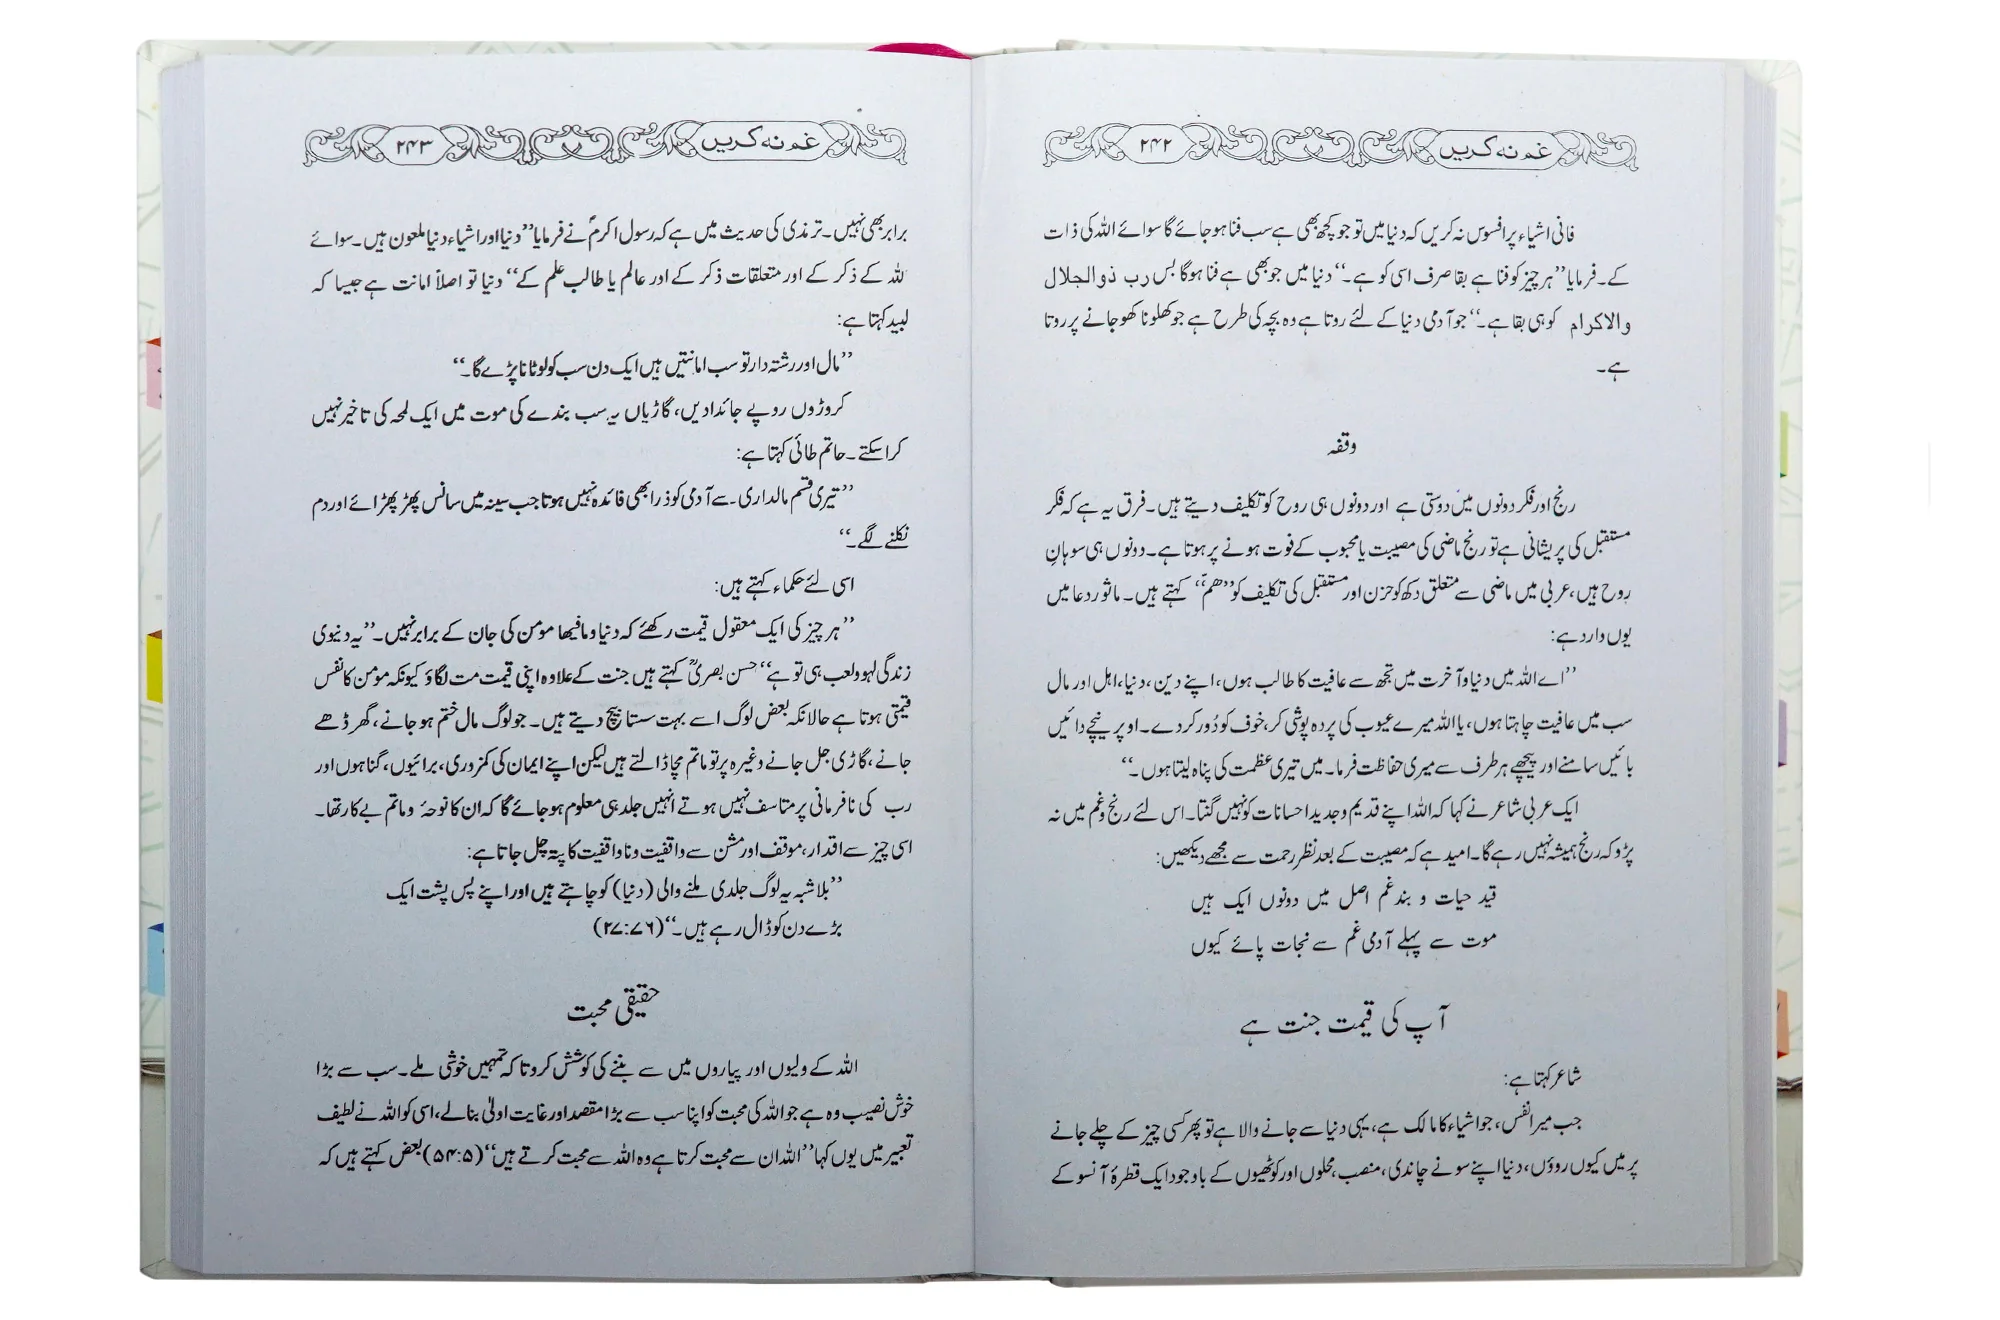 غم نہ کریں ۲۴۲
فانی اشیاء پر افسوس نہ کریں کہ دنیا میں تو جو کچھ بھی ہے سب فنا ہو جائے گا سوائے اللہ کی ذات
کے۔ فرمایا ’’ہر چیز کو فنا ہے بقا صرف اسی کو ہے۔‘‘ دنیا میں جو بھی ہے فنا ہوگا بس رب ذوالجلال
والاکرام کو ہی بقا ہے۔‘‘ جو آدمی دنیا کے لئے روتا ہے وہ بچہ کی طرح ہے جو کھلونا کھو جانے پر روتا
ہے۔
وقفہ
رنج اور فکر دونوں میں دوستی ہے اور دونوں ہی روح کو تکلیف دیتے ہیں۔ فرق یہ ہے کہ فکر
مستقبل کی پریشانی ہے تو رنج ماضی کی مصیبت یا محبوب کے فوت ہونے پر ہوتا ہے۔ دونوں ہی سوہانِ
روح ہیں، عربی میں ماضی سے متعلق دکھ کو حزن اور مستقبل کی تکلیف کو ’’ھمّ‘‘ کہتے ہیں۔ ماثور دعا میں
یوں وارد ہے:
’’اے اللہ میں دنیا و آخرت میں تجھ سے عافیت کا طالب ہوں، اپنے دین، دنیا، اہل اور مال
سب میں عافیت چاہتا ہوں، یا اللہ میرے عیوب کی پردہ پوشی کر، خوف کو دُور کر دے۔ اوپر نیچے دائیں
بائیں سامنے اور پیچھے ہر طرف سے میری حفاظت فرما۔ میں تیری عظمت کی پناہ لیتا ہوں۔‘‘
ایک عربی شاعر نے کہا کہ اللہ اپنے قدیم و جدید احسانات کو نہیں گنتا۔ اس لئے رنج و غم میں نہ
پڑو کہ رنج ہمیشہ نہیں رہے گا۔ امید ہے کہ مصیبت کے بعد نظر رحمت سے مجھے دیکھیں:
قید حیات و بند غم اصل میں دونوں ایک ہیں
موت سے پہلے آدمی غم سے نجات پائے کیوں
آپ کی قیمت جنت ہے
شاعر کہتا ہے:
جب میرا نفس، جو اشیاء کا مالک ہے، یہی دنیا سے جانے والا ہے تو پھر کسی چیز کے چلے جانے
پر میں کیوں روؤں، دنیا اپنے سونے چاندی، منصب، محلوں اور کوٹھیوں کے باوجود ایک قطرۂ آنسو کے
غم نہ کریں ۲۴۳
برابر بھی نہیں۔ ترمذی کی حدیث میں ہے کہ رسول اکرمؐ نے فرمایا ’’دنیا اور اشیاء دنیا ملعون ہیں۔ سوائے
للہ کے ذکر کے اور متعلقات ذکر کے اور عالم یا طالب علم کے‘‘ دنیا تو اصلاً امانت ہے جیسا کہ
لبید کہتا ہے:
’’مال اور رشتہ دار تو سب امانتیں ہیں ایک دن سب کو لوٹانا پڑے گا۔‘‘
کروڑوں روپے جائدادیں، گاڑیاں یہ سب بندے کی موت میں ایک لمحہ کی تاخیر نہیں
کرا سکتے۔ حاتم طائی کہتا ہے:
’’تیری قسم مالداری سے آدمی کو ذرا بھی فائدہ نہیں ہوتا جب سینہ میں سانس پھڑ پھڑائے اور دم
نکلنے لگے۔‘‘
اسی لئے حکماء کہتے ہیں:
’’ہر چیز کی ایک معقول قیمت رکھئے کہ دنیا و مافیھا مومن کی جان کے برابر نہیں۔‘‘ یہ دنیوی
زندگی لہو ولعب ہی تو ہے‘‘ حسن بصریؒ کہتے ہیں جنت کے علاوہ اپنی قیمت مت لگاؤ کیونکہ مومن کا نفس
قیمتی ہوتا ہے حالانکہ بعض لوگ اسے بہت سستا بیچ دیتے ہیں۔ جو لوگ مال ختم ہو جانے، گھر ڈھے
جانے، گاڑی جل جانے وغیرہ پر تو ماتم مچا ڈالتے ہیں لیکن اپنے ایمان کی کمزوری، برائیوں، گناہوں اور
رب کی نافرمانی پر متاسف نہیں ہوتے انہیں جلد ہی معلوم ہو جائے گا کہ ان کا نوحہ و ماتم بے کار تھا۔
اسی چیز سے اقدار، موقف اور مشن سے واقفیت و ناواقفیت کا پتہ چل جاتا ہے:
’’بلاشبہ یہ لوگ جلدی ملنے والی (دنیا) کو چاہتے ہیں اور اپنے پس پشت ایک
بڑے دن کو ڈال رہے ہیں۔‘‘ (۲۷:۷۶)
حقیقی محبت
اللہ کے ولیوں اور پیاروں میں سے بننے کی کوشش کرو تا کہ تمہیں خوشی ملے۔ سب سے بڑا
خوش نصیب وہ ہے جو اللہ کی محبت کو اپنا سب سے بڑا مقصد اور غایت اولیٰ بنا لے، اسی کو اللہ نے لطیف
تعبیر میں یوں کہا ’’اللہ ان سے محبت کرتا ہے وہ اللہ سے محبت کرتے ہیں‘‘ (۵۴:۵) بعض کہتے ہیں کہ